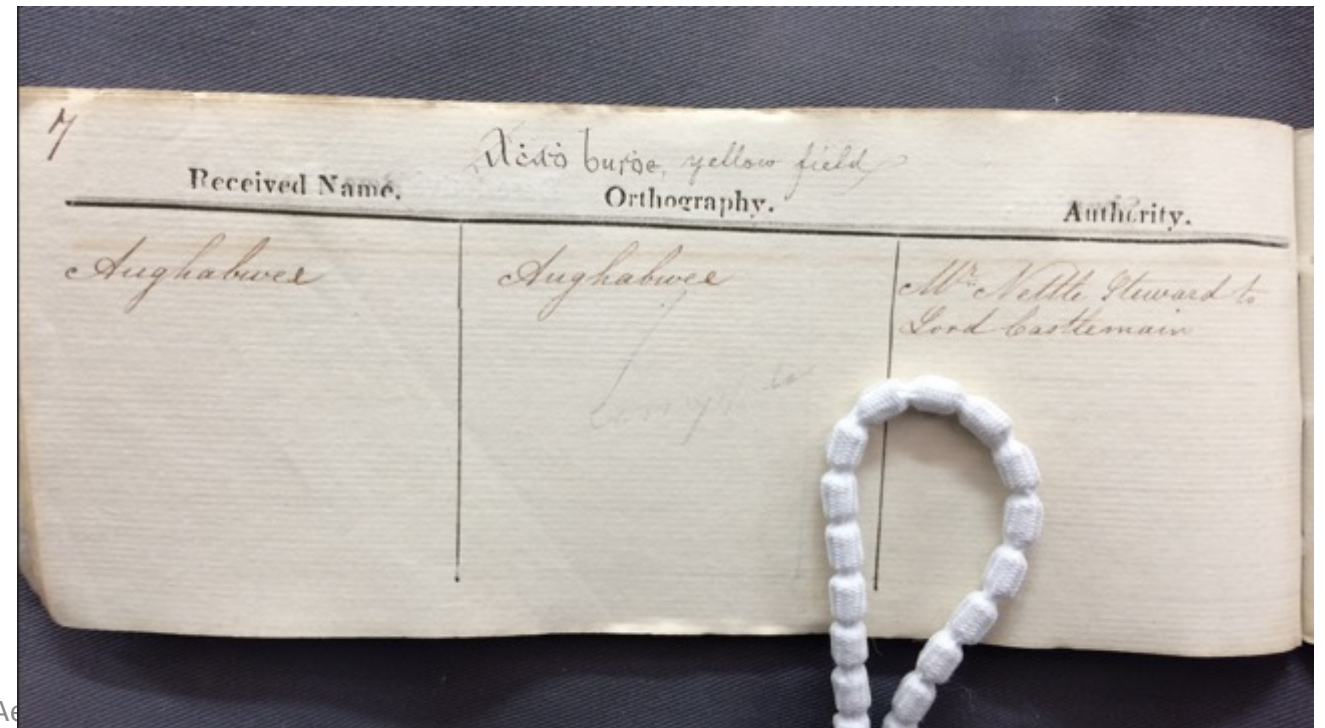 7
Aċaḋ buiḋe, yellow field
Received Name. Orthography. Authority.
Aughabwee Aughabwee Mr. Nettle Steward to
Lord Castlemain